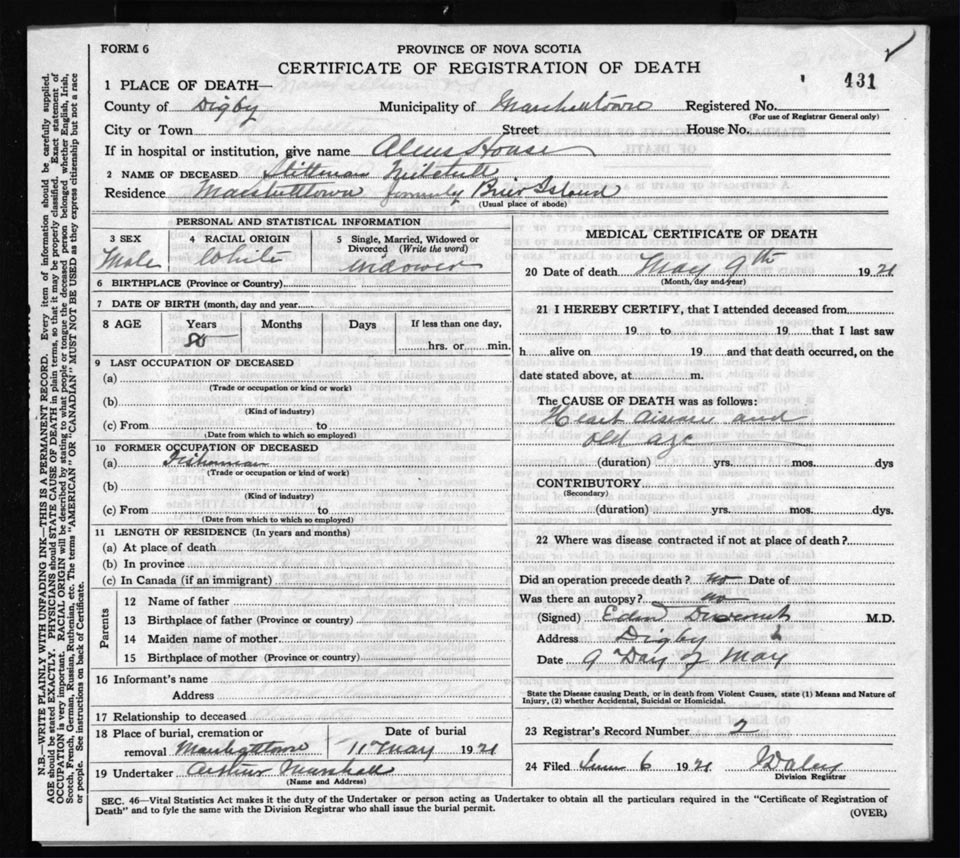 FORM 6
PROVINCE OF NOVA SCOTIA
CERTIFICATE OF REGISTRATION OF DEATH
431
1 PLACE OF DEATH—
County of Digby Municipality of Marshalltown Registered No.
(For use of Registrar General only)
City or Town Street House No.
If in hospital or institution, give name Alms House
2 NAME OF DECEASED
Residence formerly Brier Island
(Usual place of abode)
PERSONAL AND STATISTICAL INFORMATION
3 SEX 4 RACIAL ORIGIN 5 Single, Married, Widowed or Divorced (Write the word)
Male White widower
6 BIRTHPLACE (Province or Country)
7 DATE OF BIRTH (month, day and year)
8 AGE Years Months Days If less than one day,
hrs. or min.
9 LAST OCCUPATION OF DECEASED
(a)
(Trade or occupation or kind or work)
(b)
(Kind of industry)
(c) From to
(Date from which to which so employed)
10 FORMER OCCUPATION OF DECEASED
(a) Fisherman
(Trade or occupation or kind of work)
(b)
(Kind of industry)
(c) From to
(Date from which to which so employed)
11 LENGTH OF RESIDENCE (In years and months)
(a) At place of death
(b) In province
(c) In Canada (if an immigrant)
Parents
12 Name of father
13 Birthplace of father (Province or country)
14 Maiden name of mother
15 Birthplace of mother (Province or country)
16 Informant's name
Address
17 Relationship to deceased
18 Place of burial, cremation or Date of burial
removal 11 May 1921
19 Undertaker Arthur Marshall
(Name and Address)
MEDICAL CERTIFICATE OF DEATH
20 Date of death May 9th 1921
(Month, day and year)
21 I HEREBY CERTIFY, that I attended deceased from
19 to 19 that I last saw
h alive on 19 and that death occurred, on the
date stated above, at m.
The CAUSE OF DEATH was as follows:
Heart disease and
old age
(duration) yrs. mos. dys
CONTRIBUTORY
(Secondary)
(duration) yrs. mos. dys.
22 Where was disease contracted if not at place of death?
Did an operation precede death? no Date of
Was there an autopsy? no
(Signed) M.D.
Address Digby
Date 9 Day of May
State the Disease causing Death, or in death from Violent Causes, state (1) Means and Nature of
Injury, (2) whether Accidental, Suicidal or Homicidal.
23 Registrar's Record Number 2
24 Filed June 6 1921
Division Registrar
SEC. 46—Vital Statistics Act makes it the duty of the Undertaker or person acting as Undertaker to obtain all the particulars required in the "Certificate of Registration of
Death" and to fyle the same with the Division Registrar who shall issue the burial permit.
(OVER)
N.B.—WRITE PLAINLY WITH UNFADING INK—THIS IS A PERMANENT RECORD. Every item of information should be carefully supplied.
AGE should be stated EXACTLY. PHYSICIANS should STATE CAUSE OF DEATH in plain terms, so that it may be properly classified. Exact statement of
OCCUPATION is very important. RACIAL ORIGIN will be described by stating to what people or tongue the deceased person belonged whether English, Irish,
Scotch, French, German, Russian, Ruthenian, etc. The terms "AMERICAN" OR "CANADIAN" MUST NOT BE USED as they express citizenship but not a race
or people. See instructions on back of Certificate.